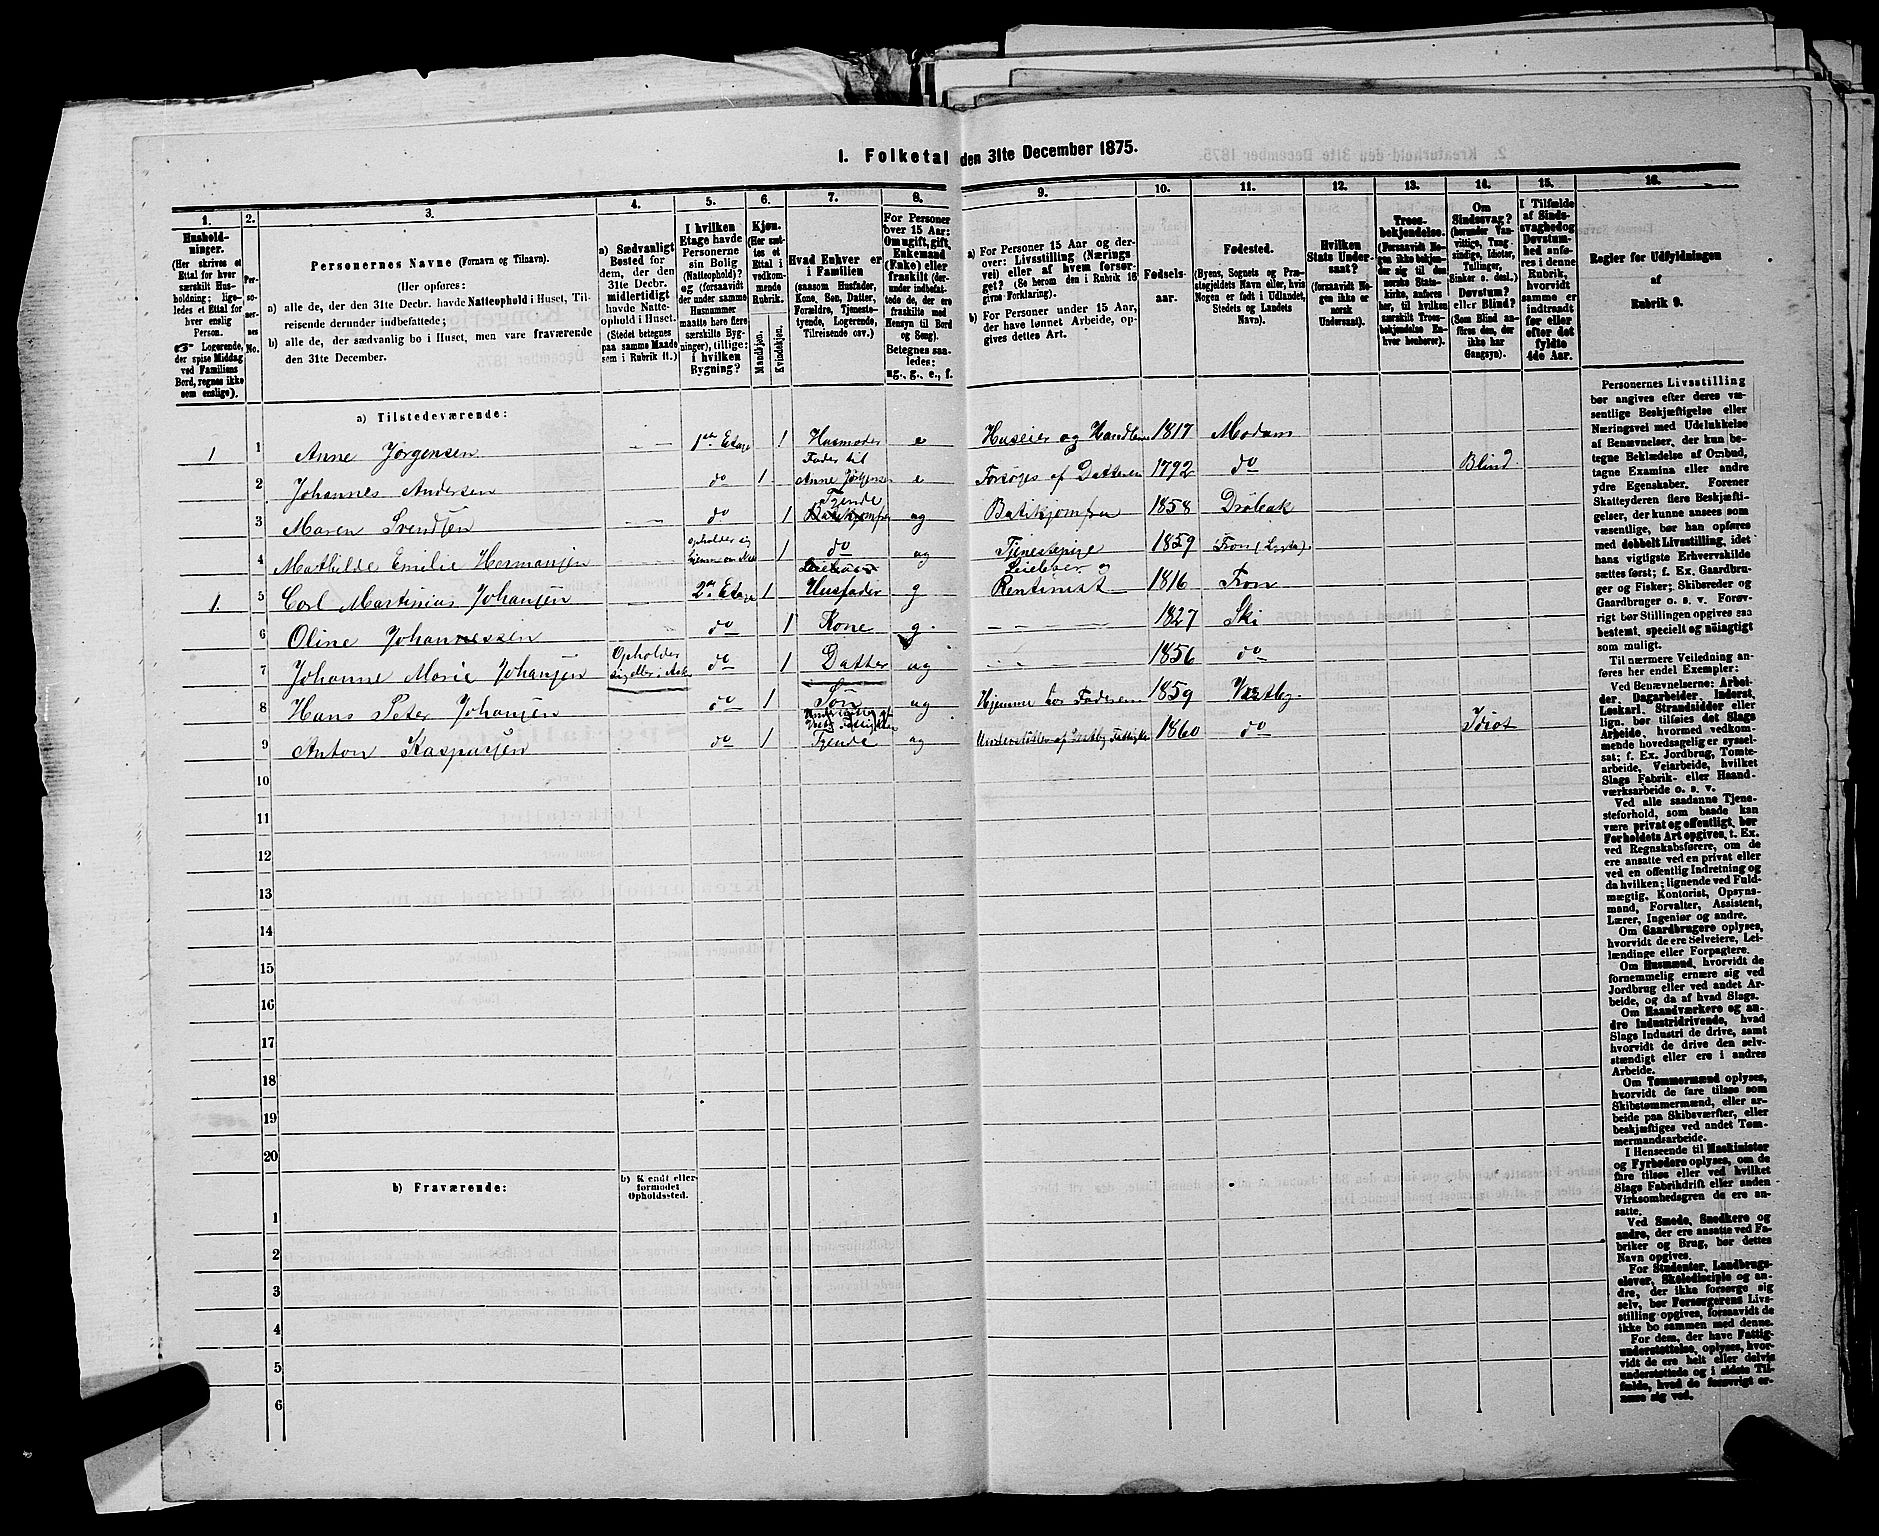 1. Folketal den 31te December 1875.
1. 2. 3. 4. 5. 6. 7. 8. 9. 10. 11. 12. 13. 14. 15. 16.
Husholdninger.
(Her skrives et
Ettal for hver
særskilt Husholdning;
ligeledes et Ettal for
hver enslig
Person.
☞ Logerende,
der spise Middag
ved Familiens
Bord, regnes ikke
som enslige).
Personernes No.
Personernes Navne (Fornavn og Tilnavn).
(Her opføres:
a) alle de, der den 31te Decbr. havde Natteophold i Huset, Tilreisende
derunder indbefattede;
b) alle de, der sædvanlig bo i Huset, men vare fraværende
den 31te December.
a) Sædvanligt
Bosted for
dem, der den
31te Decbr.
midlertidigt
havde Natteophold
i Huset.
(Stedet betegnes
paa samme Maade
som i Rubrik 11.)
I hvilken
Etage havde
Personerne
sin Bolig
(Natteophold)?
og (forsaavidt
der under samme
Husnummer
maatte høre flere
særskilte Bygninger),
tillige:
i hvilken
Bygning?
Kjøn.
(Her sættes
et
Ettal i
vedkommende
Rubrik.
Mandkjøn.
Kvindekjøn.
Hvad Enhver er
i Familien
(saasom Husfader,
Kone, Søn, Datter,
Forældre, Tjenestetyende,
Logerende,
Tilreisende osv.)
For Personer
over 15 Aar:
Om ugift, gift,
Enkemand
(Enke) eller
fraskilt (derunder
indbefattede
de, der ere
fraskilte med
Hensyn til Bord
og Seng).
Betegnes saaledes:
ug., g., e., f.
a) For Personer 15 Aar og derover:
Livsstilling (Næringsvei)
eller af hvem forsørget?
(Se herom den i Rubrik 16
givne Forklaring).
b) For Personer under 15 Aar,
der have lønnet Arbeide, opgives
dettes Art.
Fødselsaar.
Fødested.
(Byens, Sognets og Præstegjeldets
Navn eller, hvis
Nogen er født i Udlandet,
Stedets og Landets
Navn).
Hvilken
Stats Undersaat?
(forsaavidt Nogen
ikke er
norsk
Undersaat).
Troesbekjendelse.
(Forsaavidt Nogen
ikke bekjender
sig til den
norske Statskirke,
anføres
her, til hvilken
særskilt Troesbekjendelse
Enhver
henhører).
Om
Sindssvag?
(herunder Vanvittige,
Tungsindige,
Idioter,
Tullinger,
Sinker o. desl.)
Døvstum?
eller Blind?
(Som Blind
anføres den, der
ikke har
Gangsyn).
I Tilfælde
af Sindssvaghed
og
Døvstumhed
anføres
i denne
Rubrik,
hvorvidt
samme er
indtraadt
før eller
efter det
fyldte
4de Aar.
Regler for Udfyldningen
af
Rubrik 9.
a) Tilstedeværende:
1 1 Anne Jørgensen — — 1ste Etage 1 Husmoder e Huseier og 1817 Modum
2 Johannes Andersen — — do 1 Fader til Anne Jørgensen e Forsørges af Datteren 1792 do Blind.
3 Maren Svendsen — — do 1 Tjende ug Butikjomfru 1858 Drøbak
4 Mathilde Emilie Hermansen opholder sig 1 do ug Tjenestepige 1859 Fron
1. 5 Carl Martinius Johansen 2den Etage 1 Husfader g og Rentinist 1816 Fron
6 Oline Johannessen do 1 Kone g — — — 1827 Ski
7 Johanne Marie Johansen Opholder do 1 Datter ug 1856 do
8 Hans Peter Johansen do 1 Søn ug Hjemme hos Faderen 1859 Vestby
9 Anton Kaspersen do 1 Tjende ug Understøttes af Vestby 1860 do Idiot
10
11
12
13
14
15
16
17
18
19
20
b) Fraværende:
b) Kjendt eller
formodet
Opholdssted.
1
2
3
4
5
6
Personernes Livsstilling
bør angives efter deres væsentlige
Beskjæftigelse eller
Næringsvei med Udelukkelse
af Benævnelser, der kun betegne
Beklædelse af Ombud,
tagne Examina eller andre
ydre Egenskaber. Forener
Skatteyderen flere Beskjæftigelser,
der kunne ansees som
væsentlige, bør han opføres
med dobbelt Livsstilling, idet
hans vigtigste Erhvervskilde
sættes først; f. Ex. Gaardbruger
og Fisker; Skibsreder og
Gaardbruger o. s. v. Forøvrigt
bør Stillingen opgives saa
bestemt, specielt og nøiagtigt
som muligt.
Til nærmere Veiledning anføres
her endel Exempler:
Ved Benævnelserne: Arbeider,
Dagarbeider, Inderst,
Løskarl, Strandsidder eller
lign. bør tilføies det Slags
Arbeide, hvormed vedkommende
hovedsagelig er sysselsat;
f. Ex. Jordbrug, Tomtearbeide,
Veiarbeide, hvilket
Slags Fabrik- eller Haandværksarbeide
o. s. v.
Ved alle saadanne Tjenesteforhold,
som baade kan
være privat og offentligt, bør
Forholdets Art opgives, t. Ex.
ved Regnskabsførere, om de
ere ansatte ved en privat eller
ved en offentlig Indretning og
da hvilken; lignende ved Fuldmægtig,
Kontorist, Opsynsmand,
Forvalter, Assistent,
Lærer, Ingeniør og andre.
Om Gaardbrugere oplyses,
hvorvidt de ere Selveiere, Leilændinge
eller Forpagtere.
Om Husmænd, hvorvidt de
fornemmelig ernære sig ved
Jordbrug eller ved andet Arbeide,
og da af hvad Slags.
Om Haandværkere og andre
Industridrivende, hvad
Slags Industri de drive, samt
hvorvidt de drive den selvstændigt
eller ere i andres
Arbeide.
Om Tømmermænd oplyses,
hvorvidt de fare tilsøs som
Skibstømmermænd, eller arbeide
paa Skibsværfter, eller
beskjæftiges ved andet Tømmermandsarbeide.
I Henseende til Maskinister
og Fyrbødere oplyses, om de
fare tilsøs eller ved hvilket
Slags Fabrikdrift eller anden
Virksomhedsgren de ere ansatte.
Ved Smede, Snedkere og
andre, der ere ansatte ved Fabriker
og Brug, bør dettes
Navn opgives.
For Studenter, Landbrugselever,
Skoledisciple og andre,
der ikke forsørge sig
selv, bør Forsørgerens Livsstilling
opgives, forsaavidt de
ikke bo sammen med denne.
For dem, der have Fattigunderstøttelse,
oplyses, hvorvidt
de ere helt eller delvis
understøttede og i sidste Tilfælde,
hvad de forøvrigt ernære
sig ved.